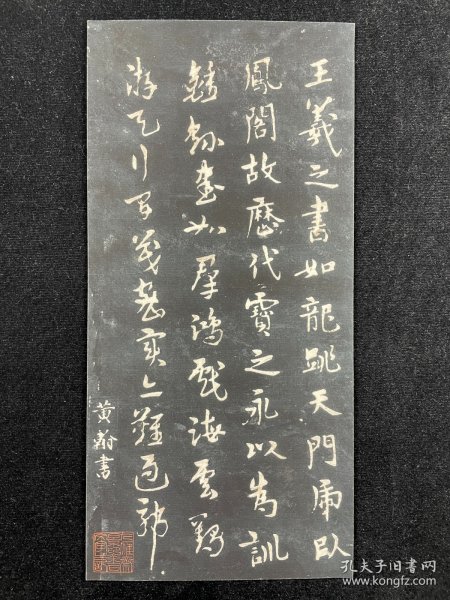 王羲之書如龍跳天門虎臥
鳳閣故歷代寶之永以為訓
鍾繇書如羣鴻戲海雲鶴
游天行間茂密實亦難過
黃翰書
孔夫子旧书网
www.kongfz.com